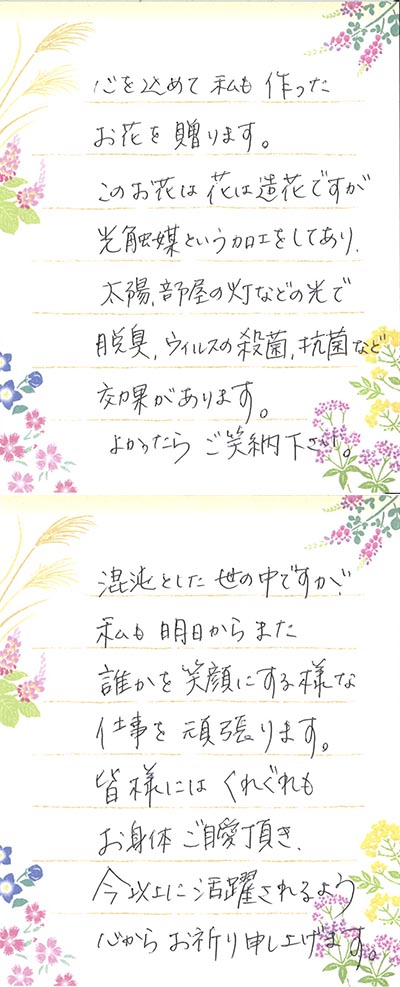 心を込めて私も作った
お花を贈ります。
このお花は花は造花ですが
光触媒という加工をしてあり、
太陽、部屋の灯などの光で
脱臭、ウィルスの殺菌、抗菌など
効果があります。
よかったらご笑納下さい。
混沌とした世の中ですが、
私も明日からまた
誰かを笑顔にする様な
仕事を頑張ります。
皆様にはくれぐれも
お身体ご自愛頂き、
今以上に活躍されるよう
心からお祈り申し上げます。